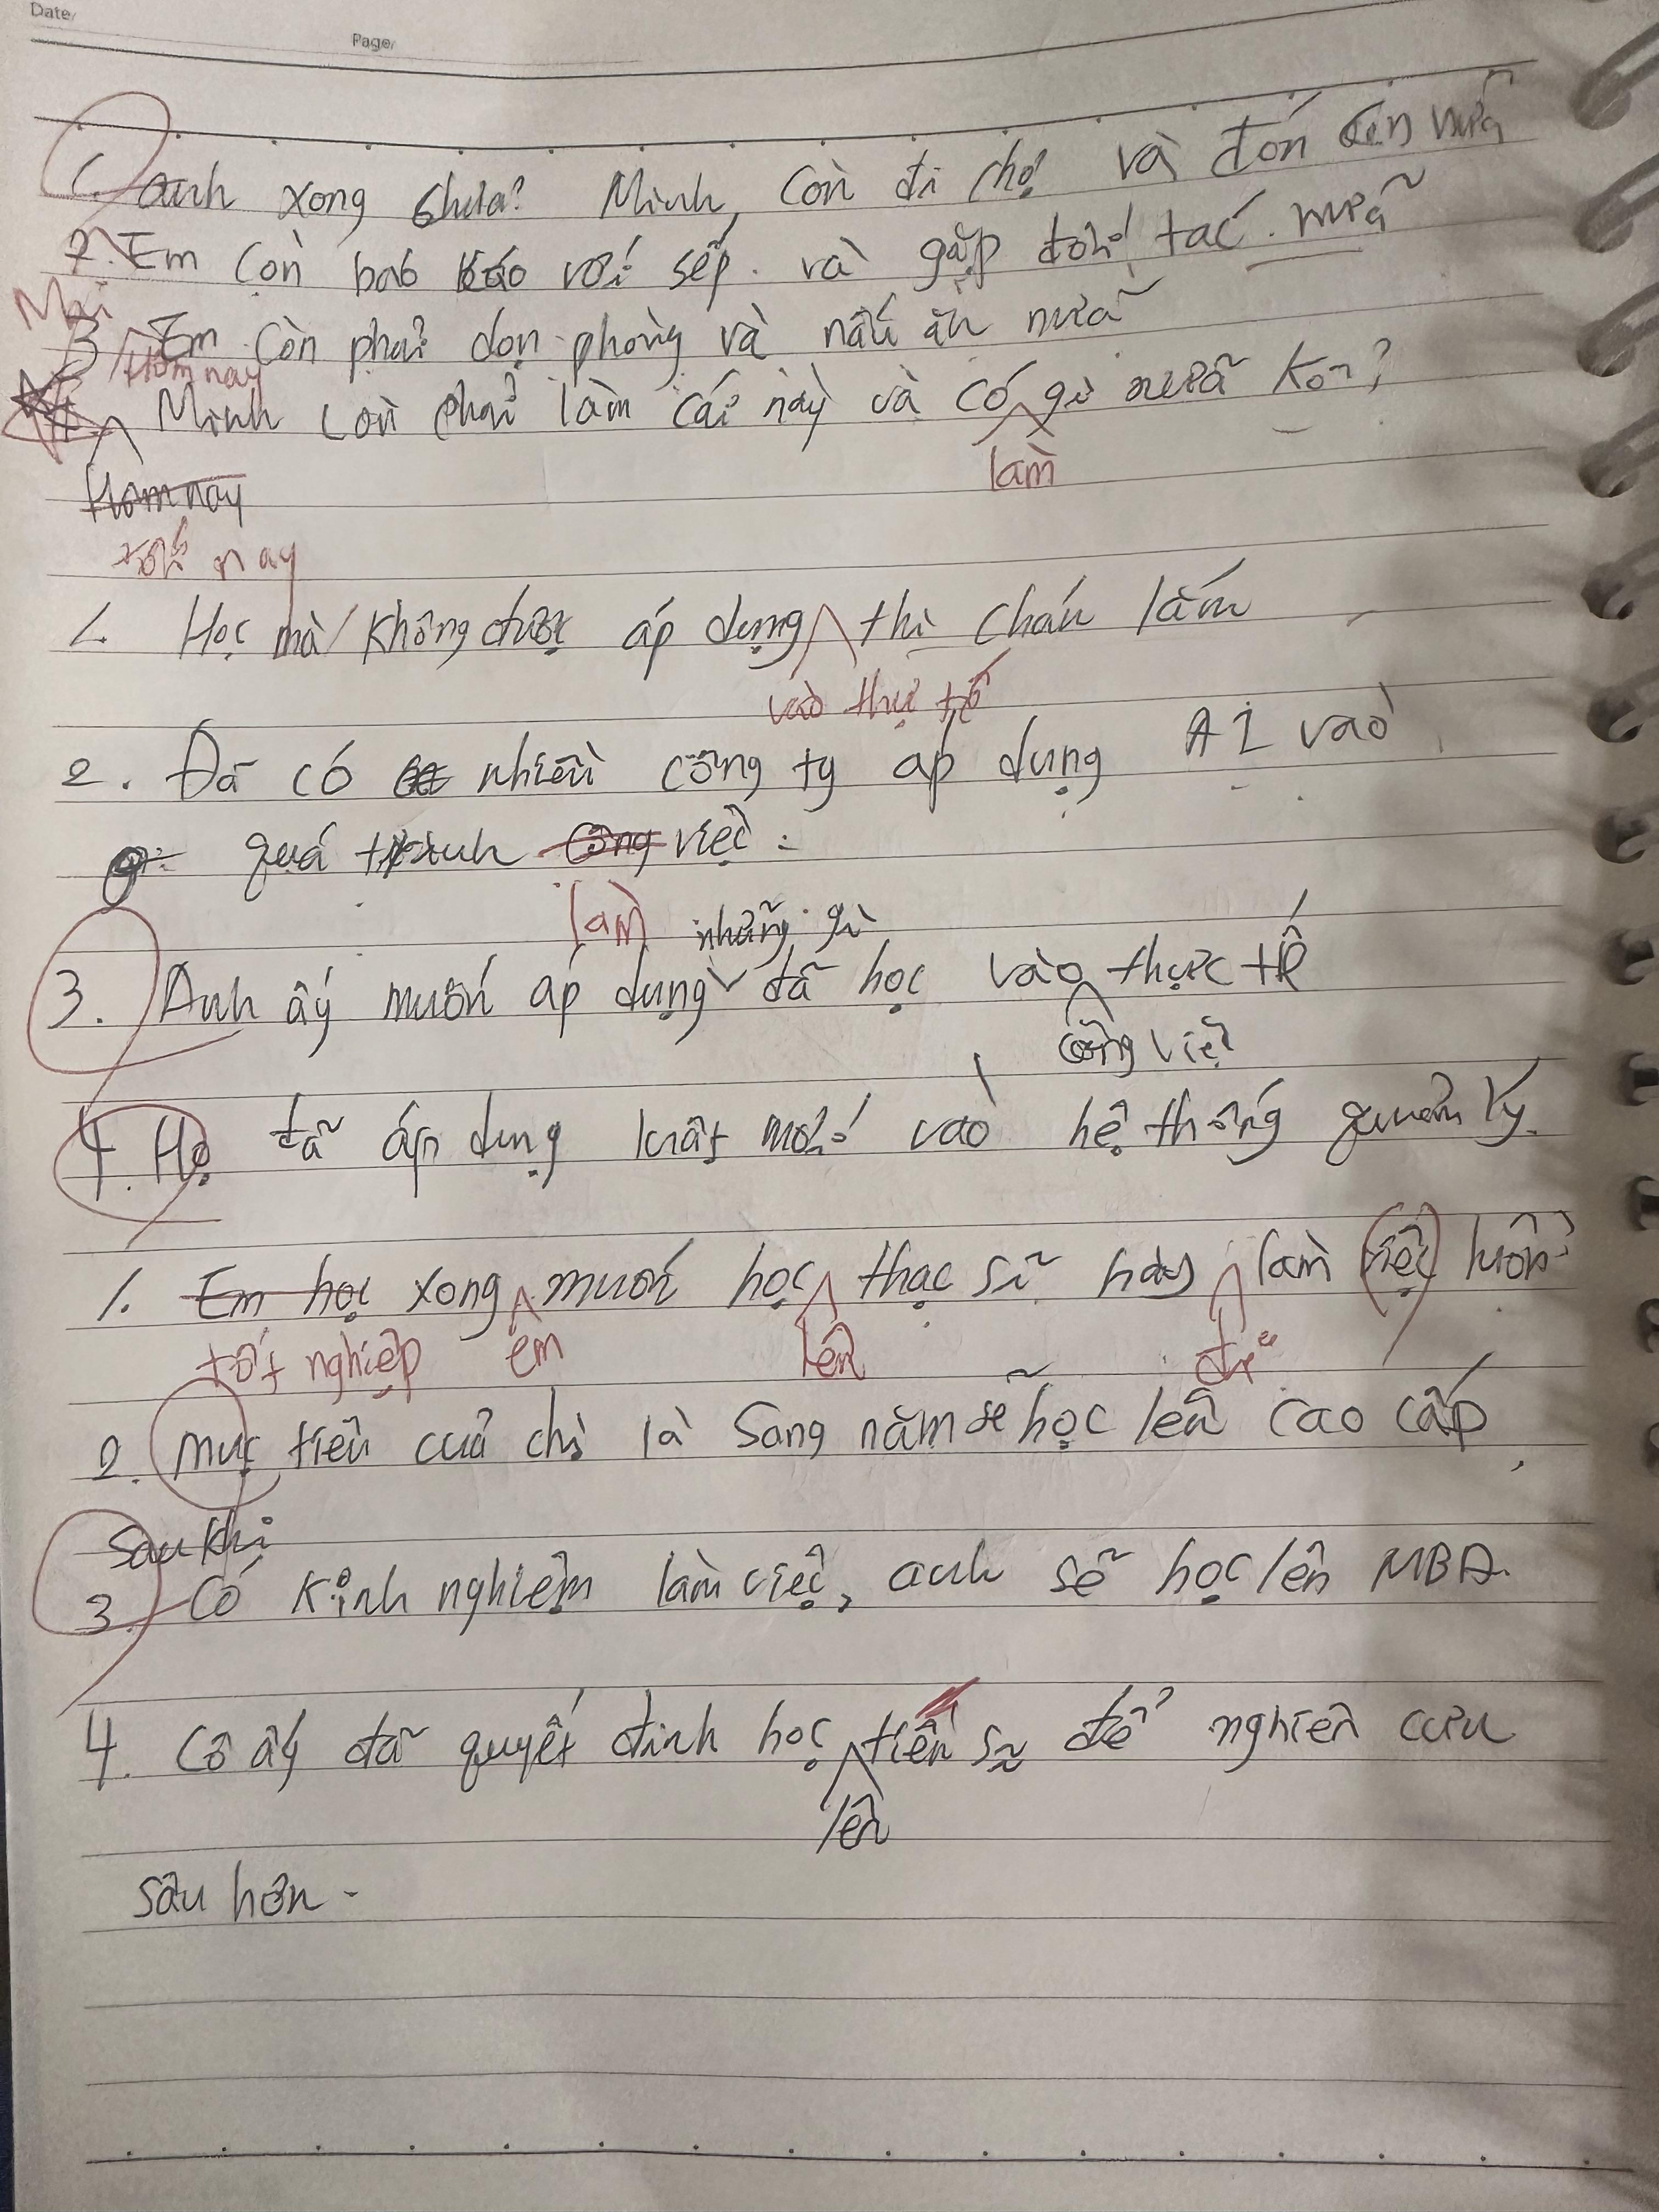 Date/
Page/
1. anh xong chưa? Mình còn đi chợ và đón con nữa
2. Em còn báo cáo với sếp. và gặp đối tác. nữa
Mai
3 Em còn phải dọn phòng và nấu ăn nữa
Hôm nay
Mình còn phải làm cái này và có gì nữa kon?
làm
Hôm nay
tối nay
1. Học mà không được áp dụng thì chán lắm
vào thực tế
2. Đã có nhiều công ty áp dụng AI vào
quá trình công việc.
làm những gì
3. Anh ấy muốn áp dụng đã học vào thực tế
công việc
4. Họ đã áp dụng luật mới vào hệ thống quản lý.
1. Em học xong muốn học thạc sĩ hay làm việc luôn
tốt nghiệp em lên đi
2. Mục tiêu của chị là sang năm sẽ học lên cao cấp
Sau khi
3. Có kinh nghiệm làm việc, anh sẽ học lên MBA.
4. Cô ấy đã quyết định học tiến sĩ để nghiên cứu
lên
sâu hơn.